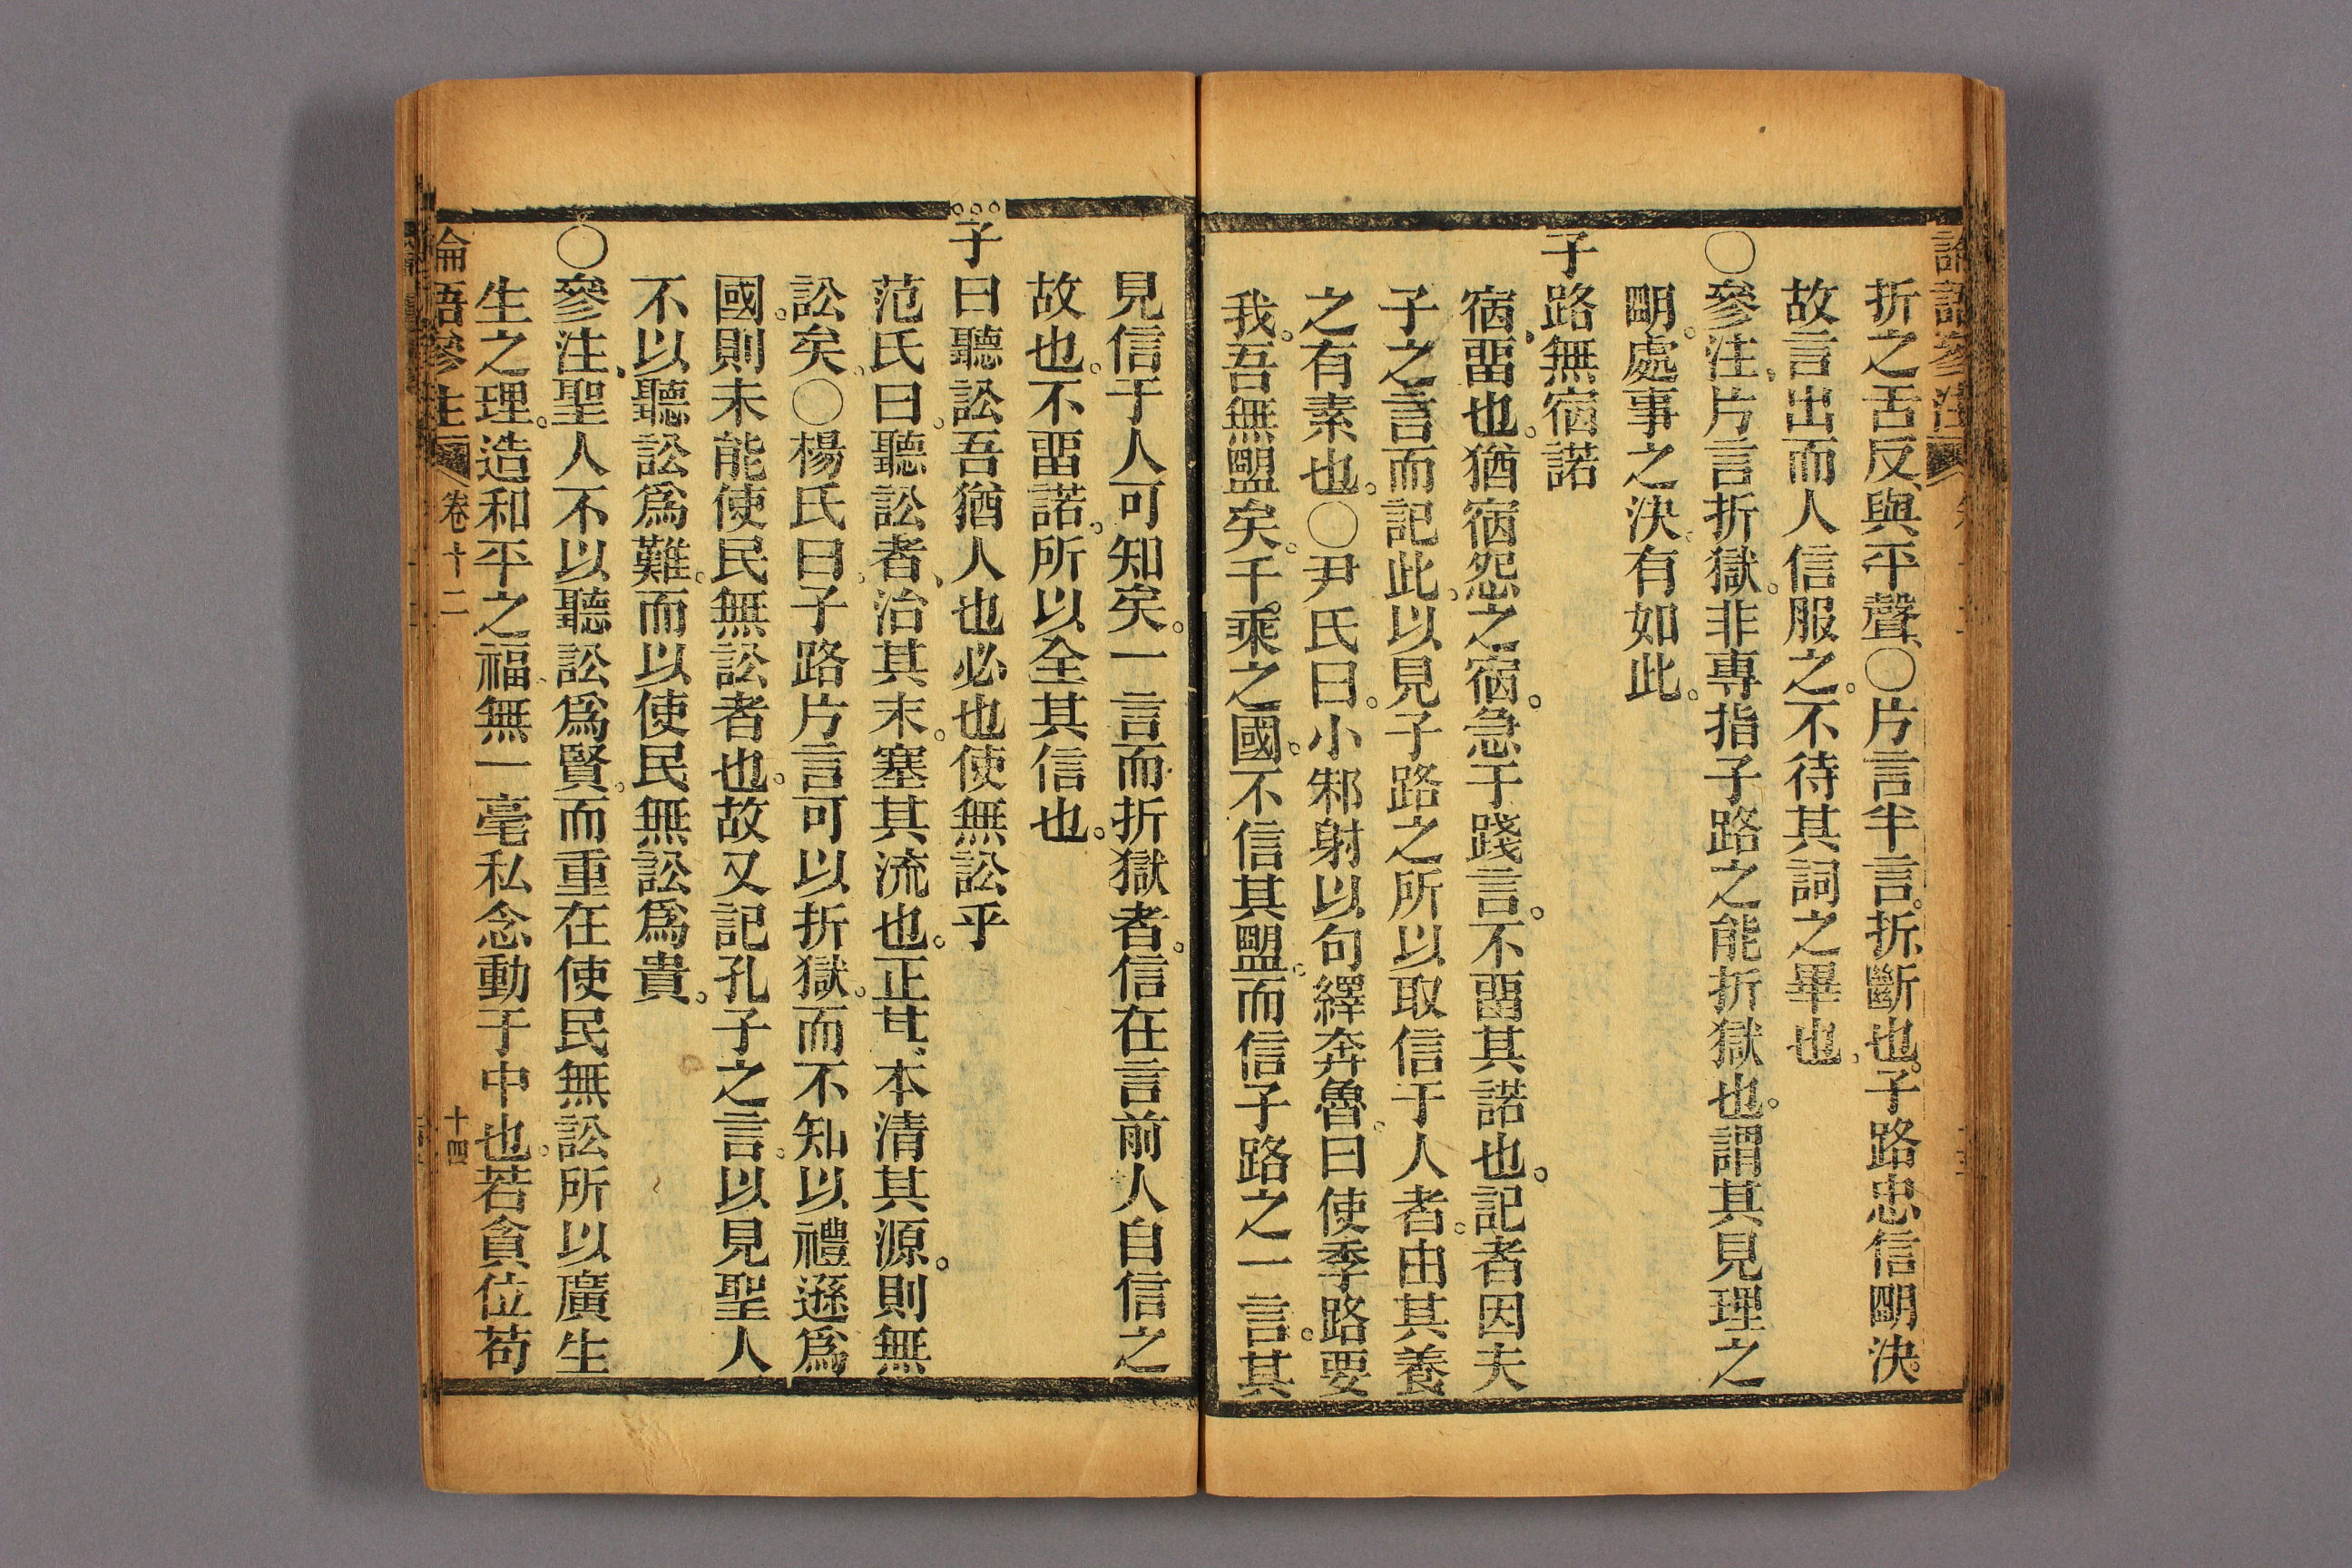 折之舌反、與平聲、〇片言半言。折斷也。子路忠信朙決。
故言出而人信服之。不待其詞之畢也。
〇參注、片言折獄。非專指子路之能折獄也。謂其見理之
朙。處事之決。有如此。
子路無宿諾
宿、畱也。猶宿怨之宿。急于踐言。不畱其諾也。記者因夫
子之言而記此、以見子路之所以取信于人者。由其養
之有素也。〇尹氏曰。小邾射以句繹奔魯。曰使季路要
我。吾無盟矣。千乘之國。不信其盟。而信子路之一言。其
見信于人可知矣。一言而折獄者。信在言前人自信之
故也。不畱諾。所以全其信也。
子曰聽訟吾猶人也必也使無訟乎
范氏曰。聽訟者、治其末。塞其流也。正其本、清其源。則無
訟矣。〇楊氏曰。子路片言可以折獄。而不知以禮遜爲
國。則未能使民無訟者也。故又記孔子之言。以見聖人
不以聽訟爲難。而以使民無訟爲貴。
〇參注、聖人不以聽訟爲賢。而重在使民無訟所以廣生
生之理。造和平之福。無一毫私念動于中也。若貪位苟
論語參注 卷十二 十四